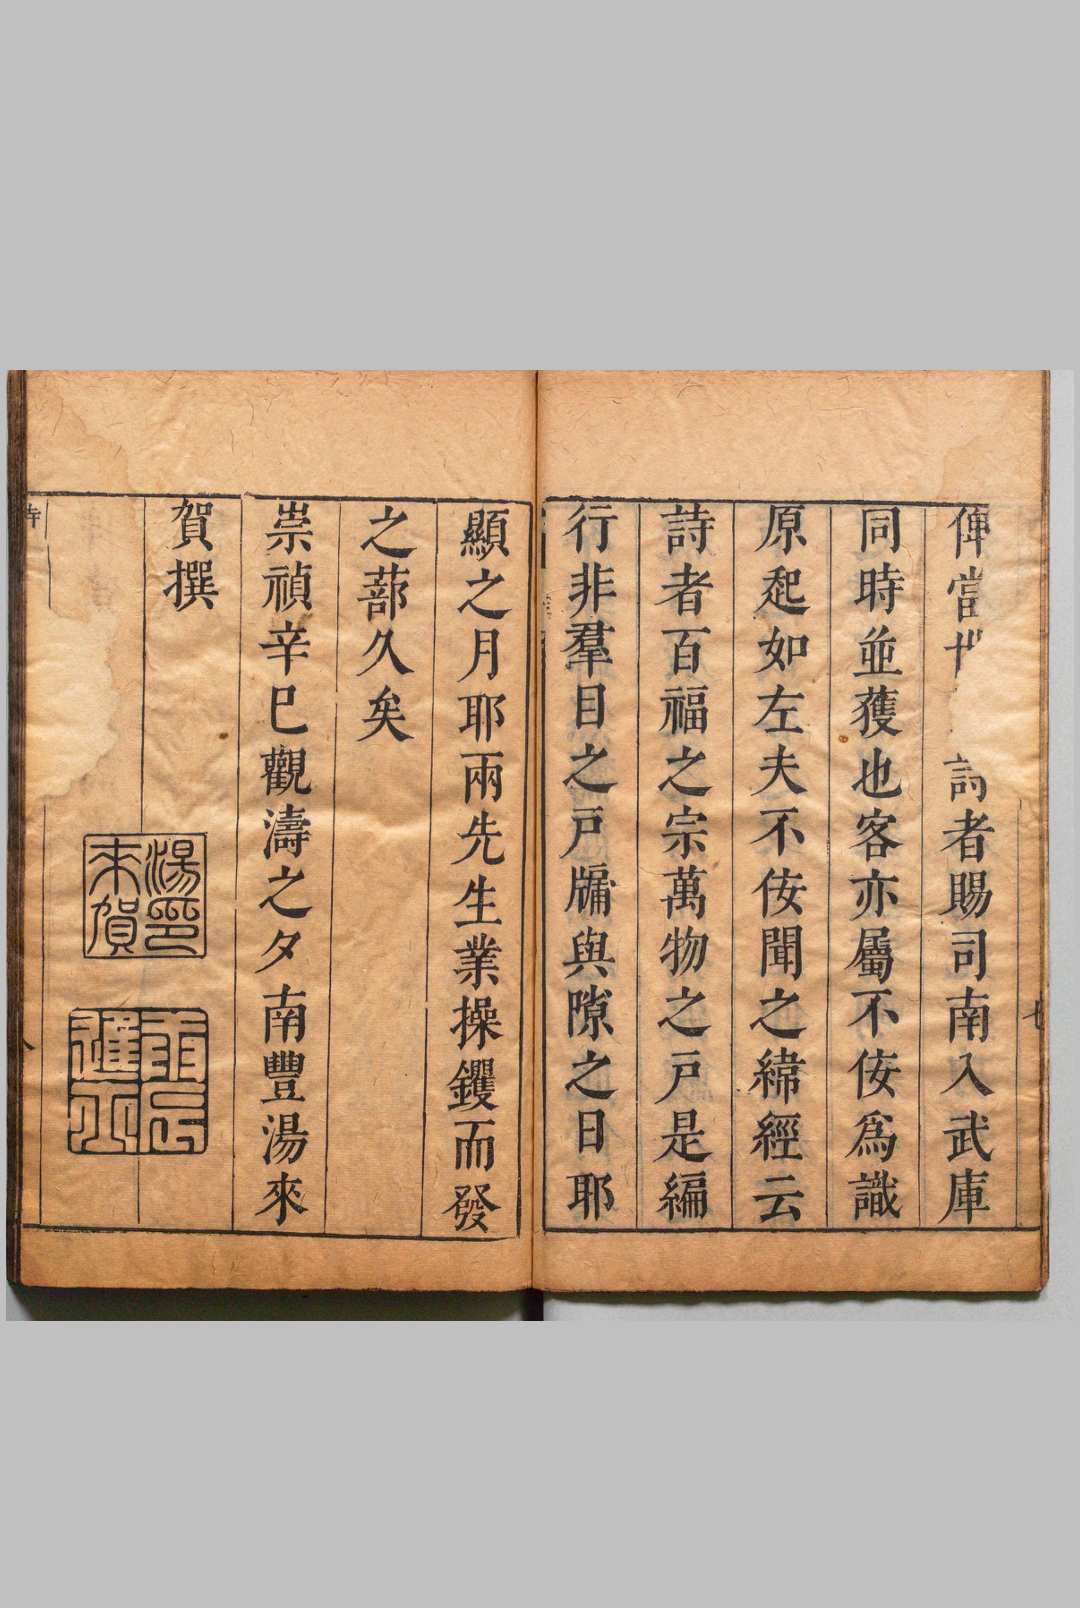 俾當世詩者賜司南入武庫
同時並獲也客亦屬不佞爲識
原起如左夫不佞聞之緯經云
詩者百福之宗萬物之戸是編
行非羣目之戸牖與隙之日耶
顯之月耶兩先生業操钁而發
之蔀久矣
崇禎辛巳觀濤之夕南豐湯來
賀撰
湯印來賀
七
八